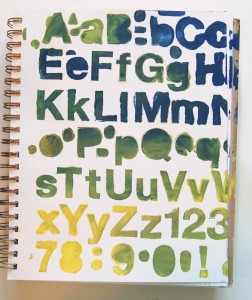 AaBbCc
EeFfGgH
KkLlMmN
oPpQq
sTtUuVv
xYyZz123
78:9.0!